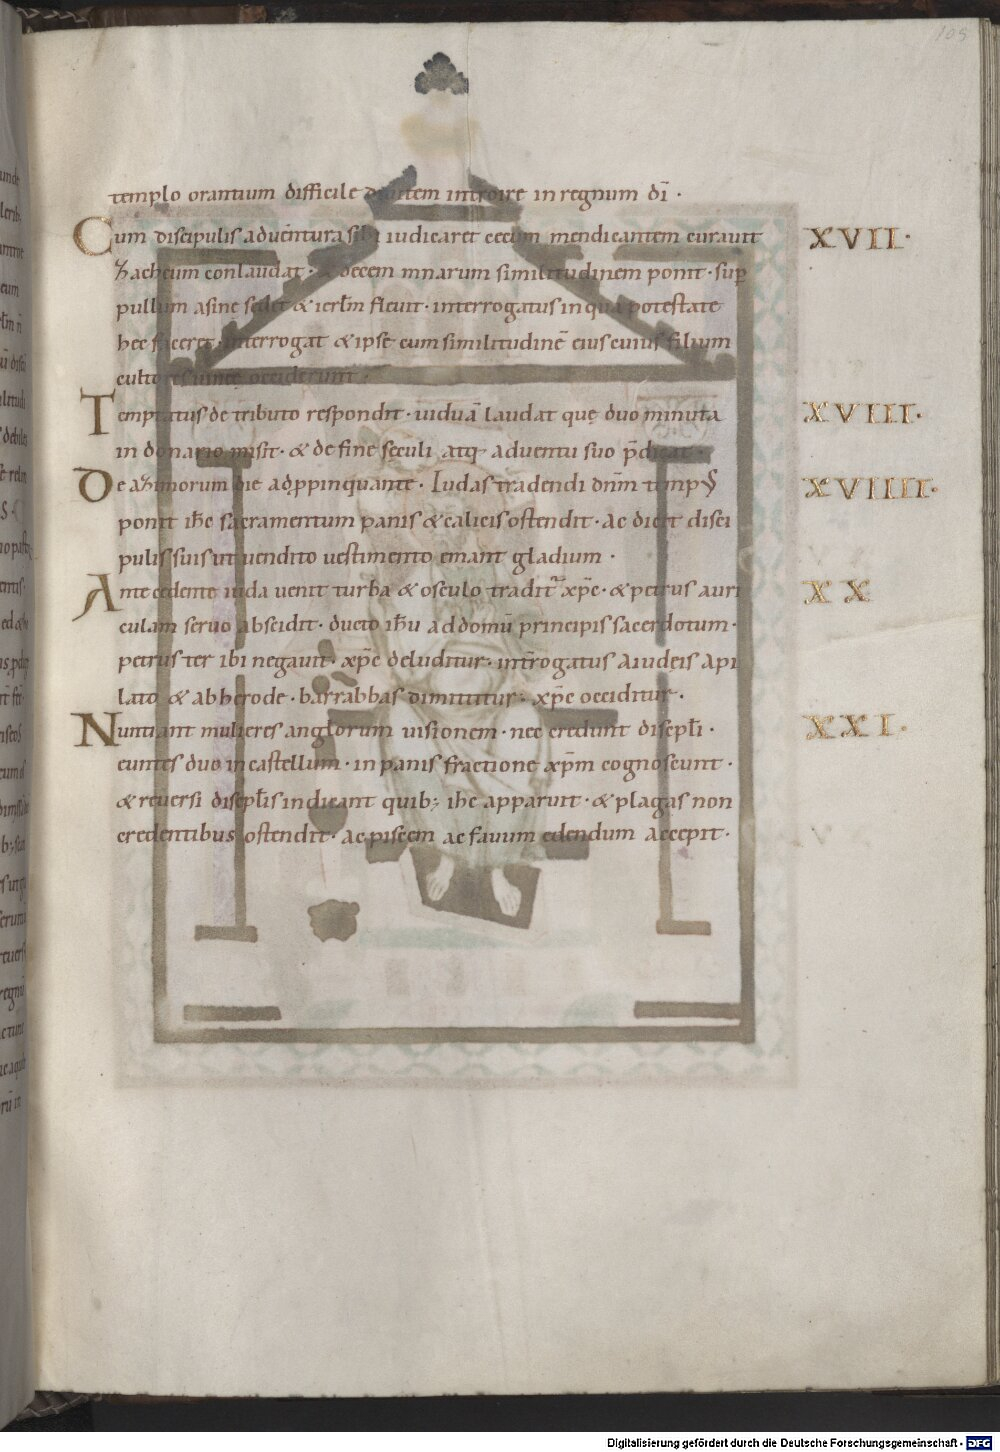 105
templo orantium difficile diuitem introire in regnum dī ·
Cum discipulis aduentura sibi iudicaret cecum mendicantem curauit XVII·
Zacheum conlaudat · & decem mnarum similitudinem ponit · sup̄
pullum asine sedet & ierłm fleuit · interrogatus in qua potestate
hec faceret · interrogat & ipse cum similitudinē eius cuius filium
cultores uineę occiderunt ·
Temptatus de tributo respondit · uiduā laudat quę duo minuta XVIII·
in donario misit · & de fine sęculi atq· aduentu suo p̄dicat ·
De azimorum die adp̱pinquante · Iudas tradendi dnm̄ temp XVIIII·
ponit ihc̄ sacramentum panis & calicis ostendit · ac dicit disci
pulis suis ut uendito uestimento emant gladium ·
Antecedente iuda uenit turba & osculo tradit xp̄c · & petrus auri XX
culam seruo abscidit · ducto ihū ad domū principis sacerdotum ·
petrus ter ibi negauit · xp̄c deluditur · intr̄ogatus a iudeis a pi
lato & ab herode · barrabbas dimittitur · xp̄c occiditur ·
Nuntiant mulieres anglorum uisionem · nec credunt discpłi · XXI·
euntes duo in castellum · in panis fractione xp̄m cognoscunt ·
& reuersi discpłis indicant quib; ihc apparuit · & plagas non
credentibus ostendit · ac piscem ac fauum edendum accepit ·
Digitalisierung gefördert durch die Deutsche Forschungsgemeinschaft · DFG